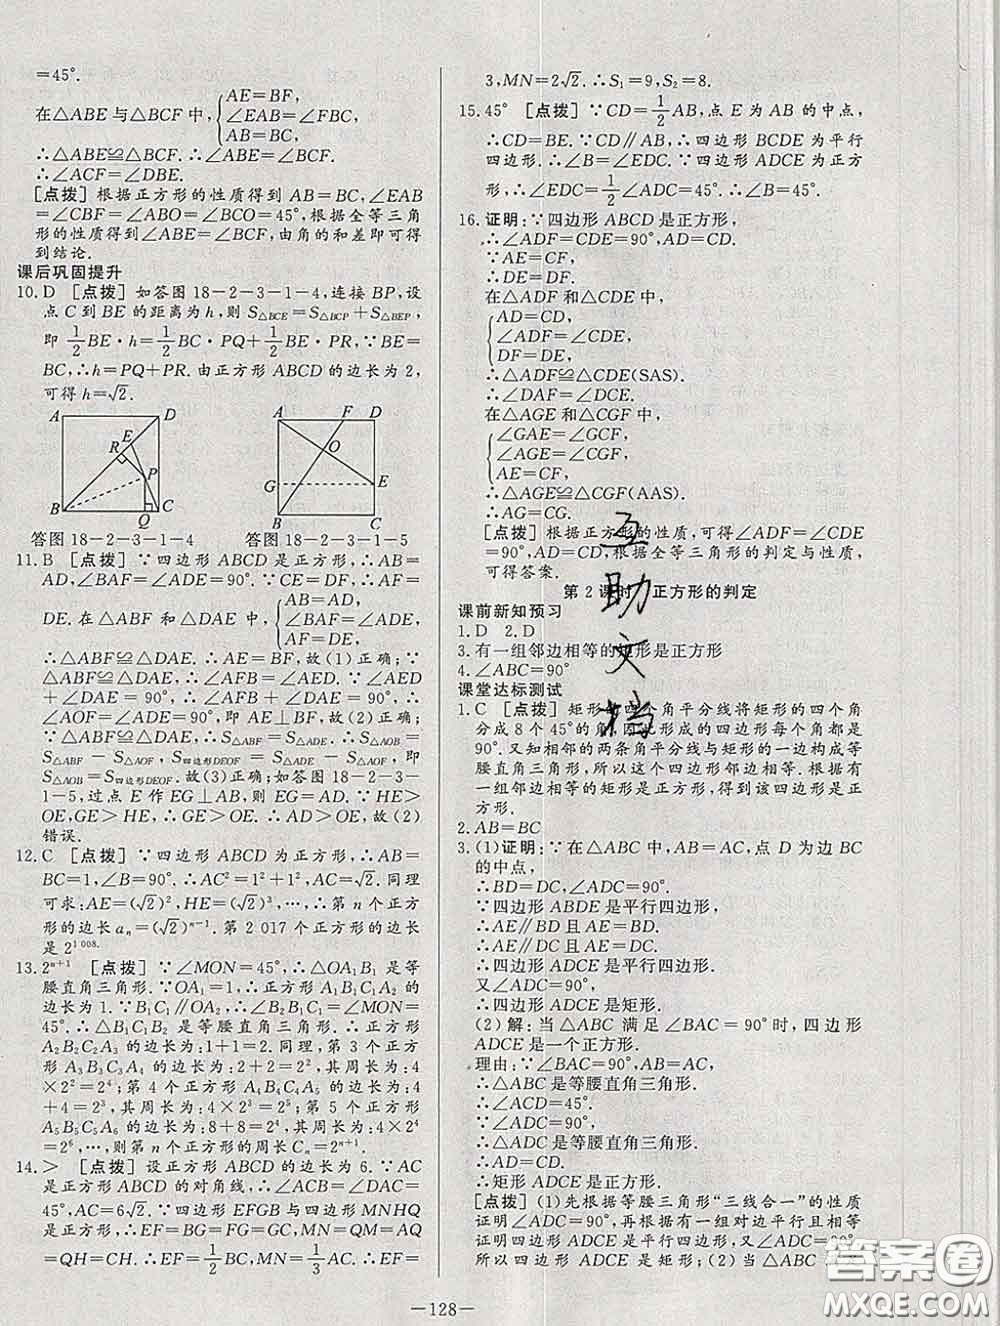 =45°.
在△ABE与△BCF中,{AE=BF, ∠EAB=∠FBC, AB=BC,
∴△ABE≌△BCF. ∴∠ABE=∠BCF.
∴∠ACF=∠DBE.
[点拨] 根据正方形的性质得到 AB=BC,∠EAB
=∠CBF=∠ABO=∠BCO=45°,根据全等三角
形的性质得到∠ABE=∠BCF,由角的和差即可得
到结论.
课后巩固提升
10. D [点拨] 如答图 18-2-3-1-4,连接 BP,设
点 C 到 BE 的距离为 h,则 S△BCE=S△BCP+S△BEP,
即 1/2 BE·h=1/2 BC·PQ+1/2 BE·PR,∵BE=
BC,∴h=PQ+PR. 由正方形 ABCD 的边长为 2,
可得 h=√2.
A D E R P B Q C
A F D O G E B C
答图 18-2-3-1-4 答图 18-2-3-1-5
11. B [点拨] ∵四边形 ABCD 是正方形,∴AB=
AD,∠BAF=∠ADE=90°. ∵CE=DF,∴AF=
DE. 在△ABF 和△DAE 中,{AB=AD, ∠BAF=∠ADE, AF=DE,
∴△ABF≌△DAE. ∴AE=BF,故(1)正确;∵
△ABF≌△DAE,∴∠ABF=∠DAE. ∵∠DAE
+∠DEA=90°,∴∠ABF+∠DEA=90°,∴
∠AOF=∠ADE=90°,即 AE⊥BF,故(2)正确;
∵△ABF≌△DAE,∴S△ABF=S△ADE. ∵S△AOB=
S△ABF-S△AOF,S四边形DEOF=S△ADE-S△AOF,即
S△AOB=S四边形DEOF. 故(3)正确;如答图 18-2-3-
1-5,过点 E 作 EG⊥AB,则 EG=AD. ∵HE>
OE,GE>HE,∴GE>OE. ∴AD>OE,故(2)
错误.
12. C [点拨] ∵四边形 ABCD 为正方形,∴AB=
BC=1,∠B=90°. ∴AC²=1²+1²,AC=√2. 同理
可求:AE=(√2)²,HE=(√2)³,…,∴第 n 个正方
形的边长 aₙ=(√2)ⁿ⁻¹. 第 2 017 个正方形的边长
是 2¹ ⁰⁰⁸.
13. 2ⁿ⁺¹ [点拨] ∵∠MON=45°,∴△OA₁B₁ 是等
腰直角三角形. ∵OA₁=1,∴正方形 A₁B₁C₁A₂ 的
边长为 1. ∵B₁C₁∥OA₂,∴∠B₂B₁C₁=∠MON=
45°. ∴△B₁C₁B₂ 是等腰直角三角形. ∴正方形
A₂B₂C₂A₃ 的边长为:1+1=2. 同理,第 3 个正方
形 A₃B₃C₃A₄ 的边长为:2+2=2²,其周长为:
4×2²=2⁴. 第 4 个正方形 A₄B₄C₄A₅ 的边长为:
4+4=2³,其周长为:4×2³=2⁵. 第 5 个正方形
A₅B₅C₅A₆ 的边长为:8+8=2⁴,其周长为:4×2⁴=
2⁶,…,则第 n 个正方形的周长 Cₙ=2ⁿ⁺¹.
14. > [点拨] 设正方形 ABCD 的边长为 6. ∵AC
是正方形 ABCD 的对角线,∴∠ACB=∠DAC=
45°,AC=6√2. ∵四边形 EFGB 与四边形 MNHQ
是正方形,∴EF=BG=FG=GC,MN=QM=AQ
=QH=CH. ∴EF=1/2 BC,MN=1/3 AC. ∴EF=
3,MN=2√2. ∴S₁=9,S₂=8.
15. 45° [点拨] ∵CD=1/2 AB,点 E 为 AB 的中点,
∴CD=BE. ∵CD∥AB,∴四边形 BCDE 为平行
四边形. ∴∠B=∠EDC. ∵四边形 ADCE 为正方
形,∴∠EDC=1/2∠ADC=45°. ∴∠B=45°.
16. 证明:∵四边形 ABCD 是正方形,
∴∠ADF=CDE=90°,AD=CD.
∵AE=CF,
∴DE=DF.
在△ADF 和△CDE 中,
{AD=CD,
∠ADF=∠CDE,
DF=DE,
∴△ADF≌△CDE(SAS).
∴∠DAF=∠DCE.
在△AGE 和△CGF 中,
{∠GAE=∠GCF,
∠AGE=∠CGF,
AE=CF,
∴△AGE≌△CGF(AAS).
∴AG=CG.
[点拨] 根据正方形的性质,可得∠ADF=∠CDE
=90°,AD=CD,根据全等三角形的判定与性质,
可得答案.
第 2 课时 正方形的判定
课前新知预习
1. D 2. D
3. 有一组邻边相等的矩形是正方形
4. ∠ABC=90°
课堂达标测试
1. C [点拨] 矩形的四个角平分线将矩形的四个角
分成 8 个 45°的角,因此形成的四边形每个角都是
90°. 又知相邻的两条角平分线与矩形的一边构成等
腰直角三角形,所以这个四边形邻边相等. 根据有
一组邻边相等的矩形是正方形,得到该四边形是正
方形.
2. AB=BC
3. (1)证明:∵在△ABC 中,AB=AC,点 D 为边 BC
的中点,
∴BD=DC,∠ADC=90°.
∵四边形 ABDE 是平行四边形,
∴AE∥BD 且 AE=BD.
∴AE∥DC 且 AE=DC.
∴四边形 ADCE 是平行四边形.
又∠ADC=90°,
∴四边形 ADCE 是矩形.
(2)解:当△ABC 满足∠BAC=90°时,四边形
ADCE 是一个正方形.
理由:∵∠BAC=90°,AB=AC,
∴△ABC 是等腰直角三角形.
∴∠ACD=45°.
∵∠ADC=90°,
∴△ADC 是等腰直角三角形.
∴AD=CD.
∴矩形 ADCE 是正方形.
[点拨] (1)先根据等腰三角形“三线合一”的性质
证明∠ADC=90°,再根据有一组对边平行且相等
证明四边形 ADCE 是平行四边形,又∠ADC=90°,
所以四边形 ADCE 是矩形;(2)当△ABC 满足
—128—
互助文档
答案圈
MXQE.COM